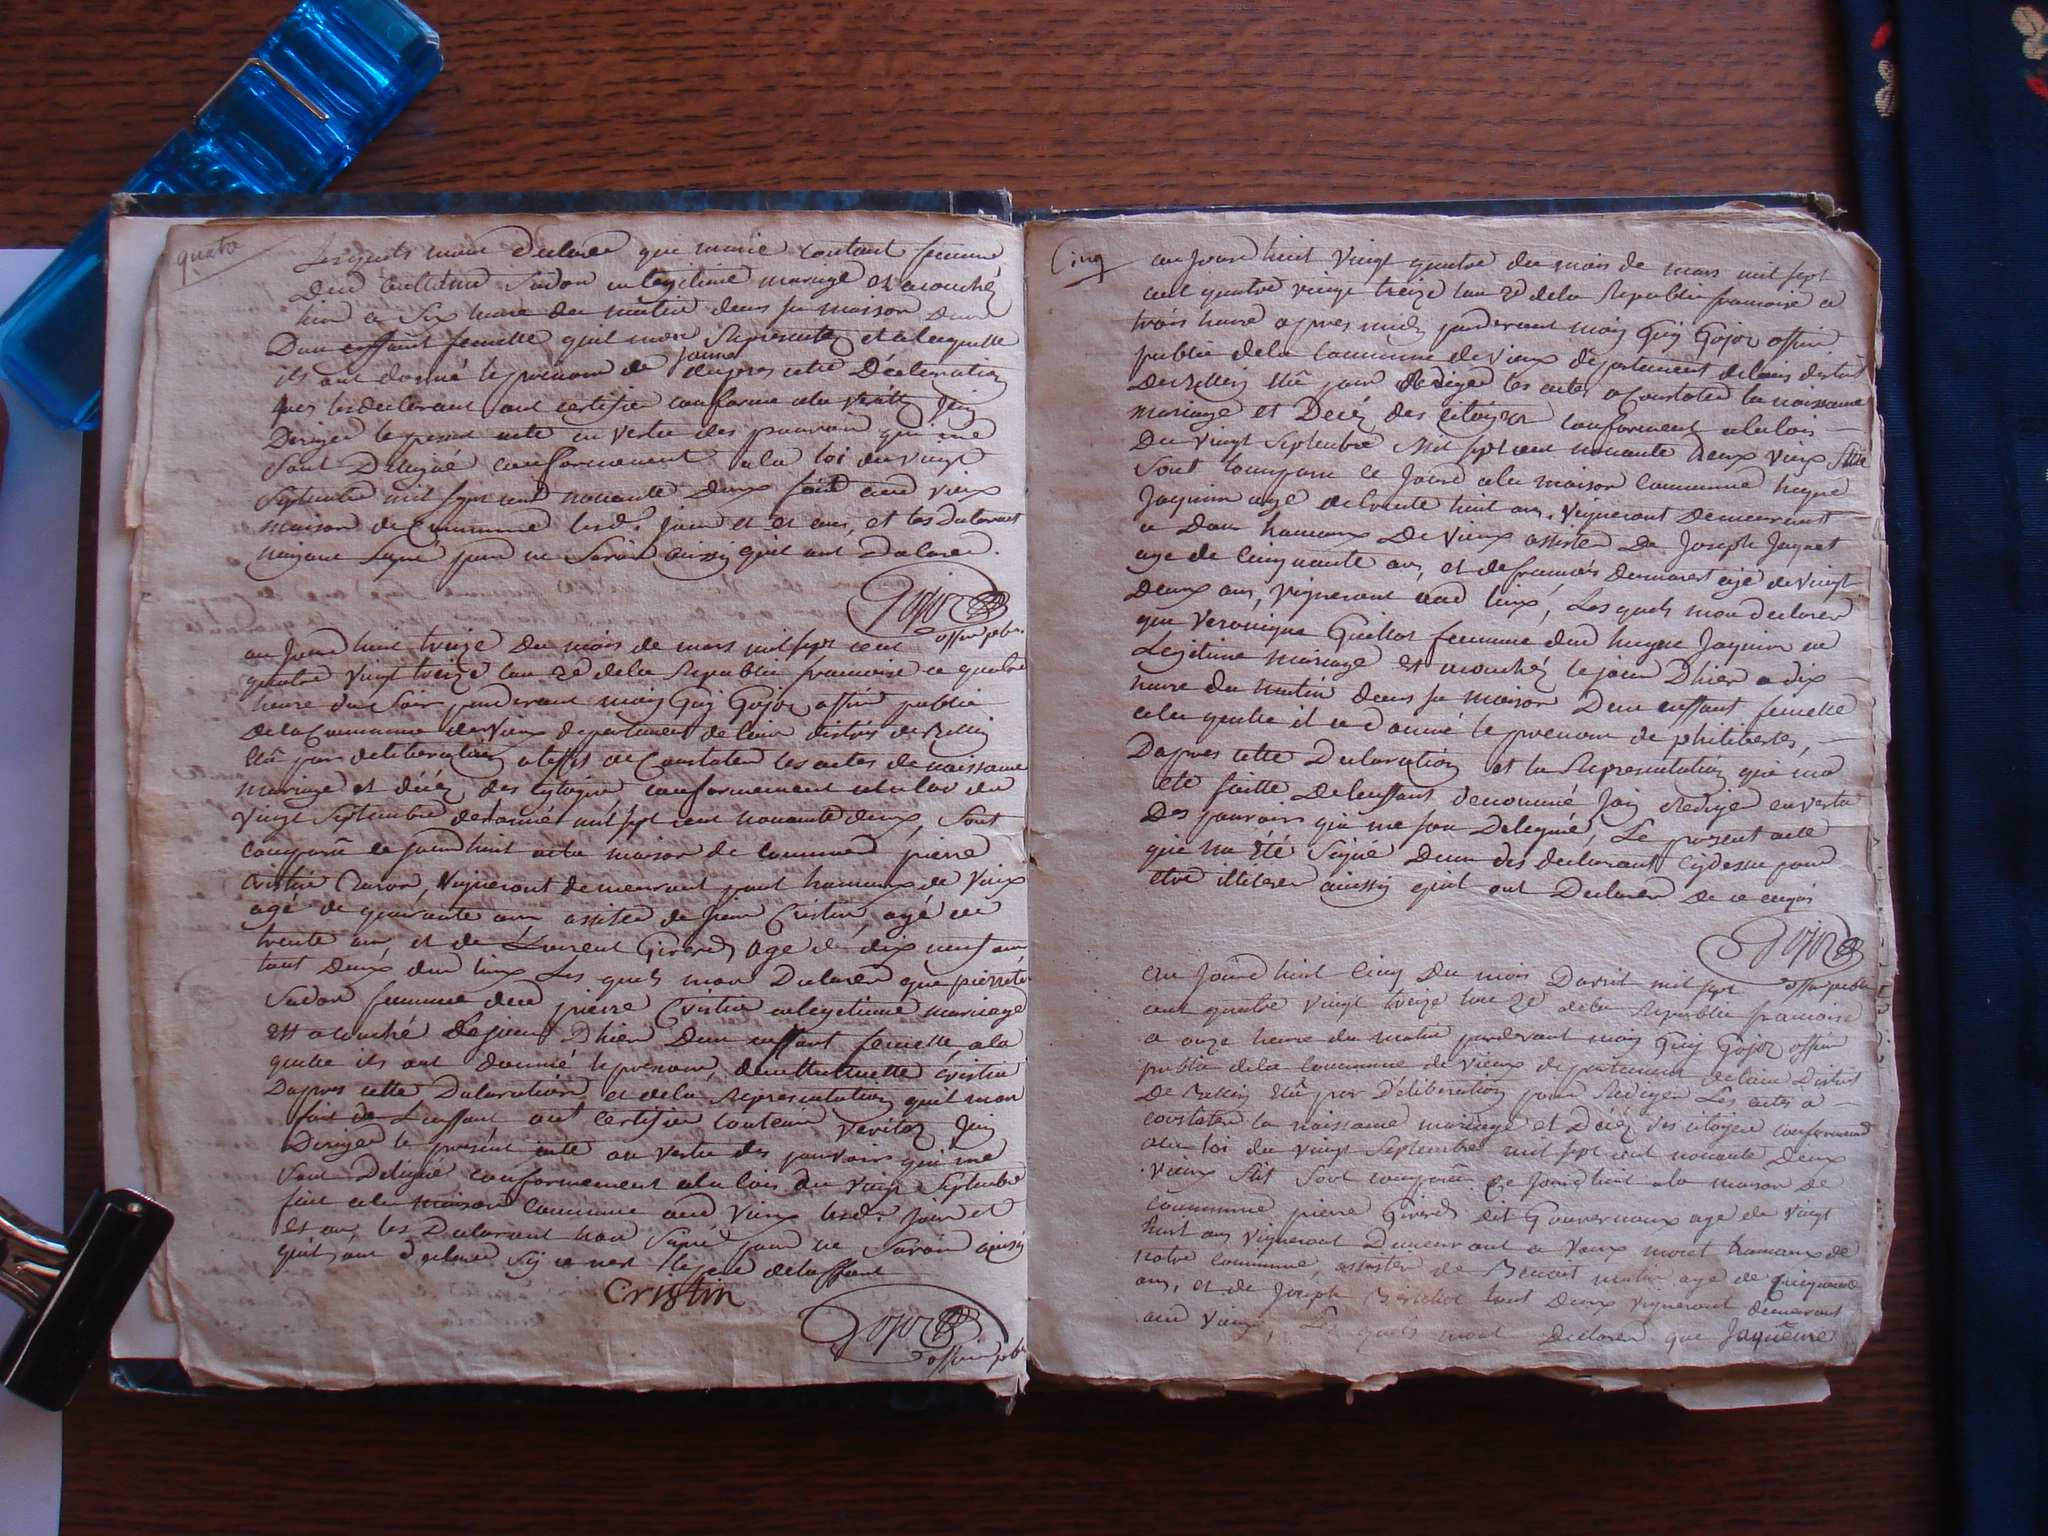 quatre
Lesquels mont declarer que marie coutant femme
Dud Sudon en legitime mariage est acouché
hier a Six heure du matin dans sa maison
Dun enffant femelle quil mon Representer et a laquelle
ils ont donné le prenom de dapres cette Déclaration
que les declarant ont certifier conforme a la vérité Jay
Diriger le present acte en vertu des pouvoir qui me
sont Delegué conformement a la loi du vingt
Septembre mil sept cent nonante Deux fait aud vieux
maison de Commune lesd. jour et et an, et les declarant
nayant Signé pour ne Savoir ainssy quil ont Declarer.
Gojoz
officier public
au Jourdhuit treize Du mois de mars mil sept cent
quatre vingt treize lan 2e de la Republic francoise a quatre
heure du Soir pardevant moy Guy Gojoz officié public
De la Commune de vieux departement de lain district de Belley
Elû par deliberation a leffet de Constater les actes de naissance
mariage et décés des cytoyen conformement a la loi du
vingt Septembre de lannée mil sept cent nonante deux, Sont
comparû ce jourdhuit a la maison de commune pierre
Cristin vigneront demeurant hameaux de Vieux
agé de quarante ans assiter de Cristin, agé de
trente an, et de Laurent Girerd age de dix neuf an
tout deux dud lieux Les quels mon Declarer que pierrete
Sudon femme dud pierre Cristin en legitime mariage
est acouché Le jour Dhier Dun enffant femelle, a la
quelle ils ont donné le prenom, Cristin
Dapres cette Declaration et de la Representation quil mon
fait de Lenffant ont certifier contenir veritez Jay
Diriger le present acte en vertu des pouvoirs qui me
sont Deligué conformement a la lois du vingt Septembre
fait a la maison Commune aud Vieux lesd. jour et
et an, les Declarant non Signé pour ne Savoir ainsy
quil ont declarer Sy ce nest le pere de lenffant
Cristin
Gojoz
officier public
Cinq
au Jourd huit Vingt quatre du mois de mars mil sept
cent quatre vingt treize lan 2e de la Republic francoise a
trois heure apres midy pardevant moy Guy Gojoz officié
public de la Commune de vieux departement de lain district
De Belley Elû pour Rediger les actes a Constater la naissance
mariage et Decés des Citoyen conforment a la lois
Du vingt Septembre Mil sept cent nonante Deux vieux Stile
Sont Comparu ce Jourd a la maison Commune hugue
Jaquin agé de trente huit ans, vigneront Demeurant
a Don hameaux De vieux assister De Joseph Jaquet
age de Cinquante an, et de francois Demarest agé de vingt
Deux ans, vigneront aud lieux, Les quels mon declarer
que Veronique Guillot femme dud hugue Jaquin en
Legitime mariage est acouché le jour Dhier a dix
heure du matin dans sa maison Dun enffant femelle
a la quelle il a donné le prenom de philiberte,
Dapres cette Declaration et la Representation qui ma
eté faitte De lenffant denommé Jay Rediger en vertu
Des pouvoirs qui me son Delegué, Le present acte
qui na été Signé Daucun des declarant Cydessu pour
etre illiterer ainssy quil ont Declarer De ce enquis
Gojoz
officier public
Au Jourd huit Cinq Du mois Davril mil sept
cent quatre vingt treize lan 2e de la Republic francoise
a onze heure du matin pardevant moy Guy Gojoz officié
public de la Commune de vieux departement de lain District
De Belley Elû par Deliberation pour Rediger Les actes a
constater la naissance mariage et Décés des citoyen conforment
a la loi du vingt Septembre mil sept cent nonante Deux
vieux Stil Sont comparû ce Jourd huit a la maison De
commune pierre Girerd dit Gouvernoux age de vingt
huit ans vigneront Demeurant a Vaux moret hameaux de
notre commune, assister de Benoit age de Cinquante
ans, et de Joseph tout Deux vigneront demeurant
aud Vieux, Les quels mont declarer que Jaquême